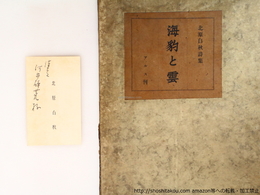 北原白秋詩集
海豹と雲
アルス刊
北原白秋
http://shoshitakou.com amazon等への転載・加工禁止